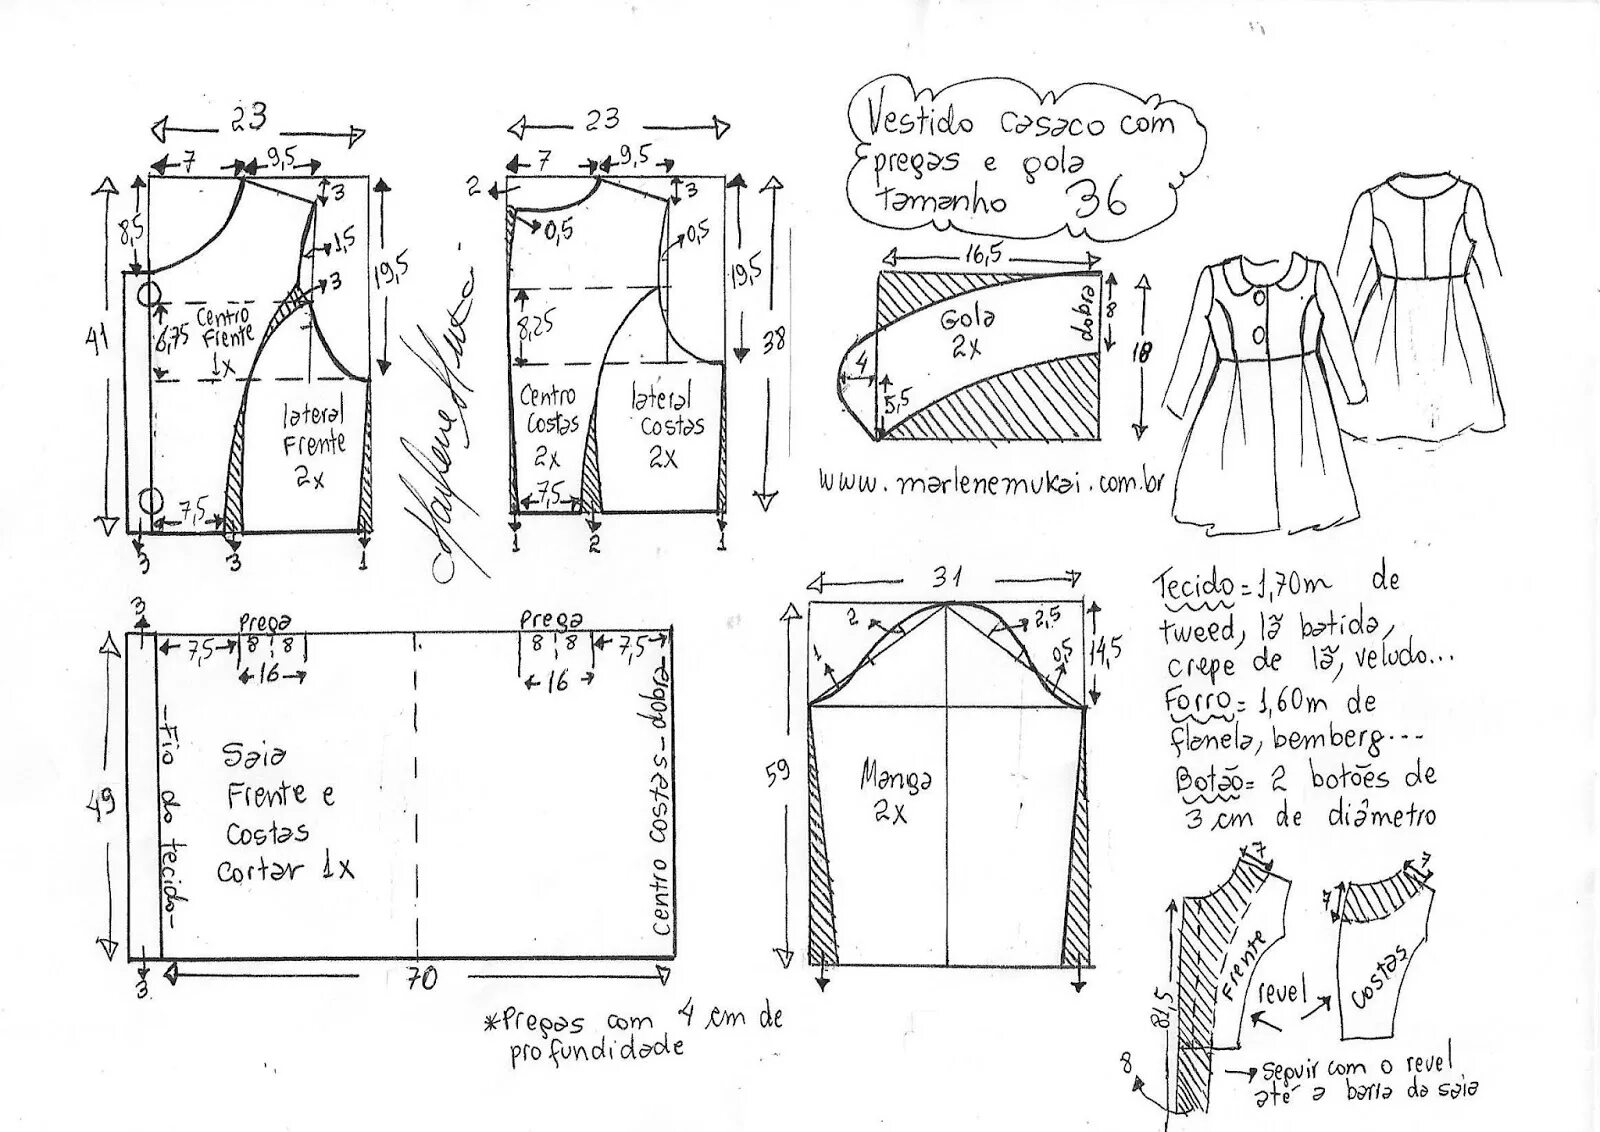 Vestido casaco com
pregas e gola
tamanho 36
23
7
9,5
3
8,5
1,5
3
19,5
41
6,75
Centro
Frente
1x
lateral
Frente
2x
7,5
3
3
1
23
7
9,5
2
3
0,5
0,5
19,5
38
8,25
Centro
Costas
2x
lateral
Costas
2x
7,5
1
2
1
16,5
Gola
2x
dobra
8
18
4
5,5
www.marlenemukai.com.br
3
Prega
8 8
7,5
16
Prega
8 8
7,5
16
49
-Fio do tecido-
Saia
Frente e
Costas
Cortar 1x
centro costas-dobra-
3
70
*Pregas com 4 cm de
profundidade
31
2
2,5
1
0,5
14,5
59
Manga
2x
Tecido = 1,70m de
tweed, lã batida,
crepe de lã, veludo...
Forro = 1,60m de
flanela, bemberg...
Botão = 2 botões de
3 cm de diâmetro
7
7
7
Frente
revel
Costas
81,5
8
Seguir com o revel
até a barra da saia